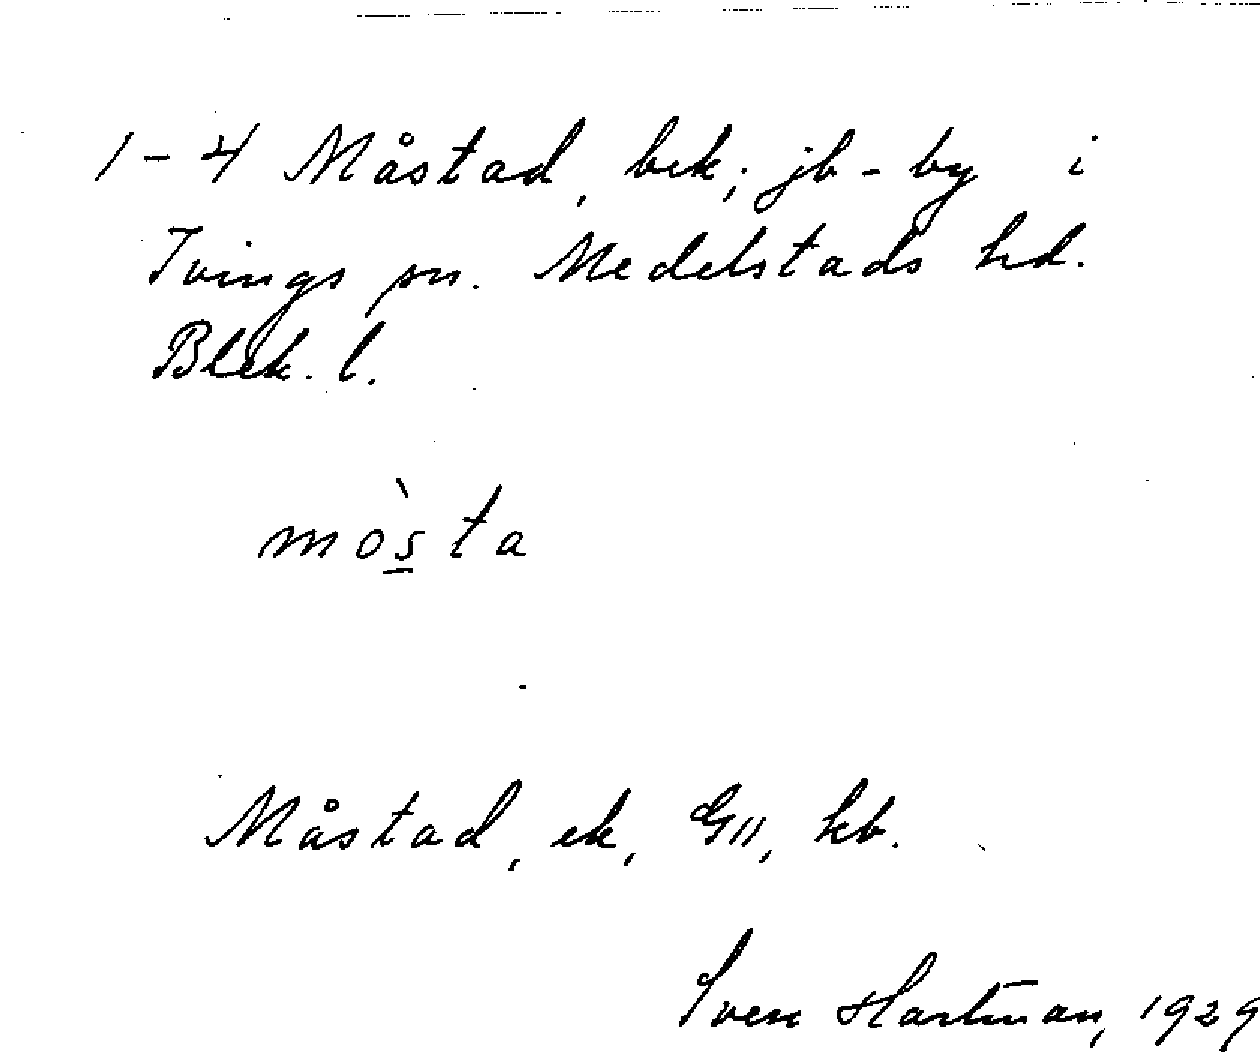 1-4 Måstad, bek; jb-by i
Tvings sn. Medelstads hd.
Blek. l.
mòs̲ta
Måstad, ek, GII, kb.
Sven Hartman, 1929